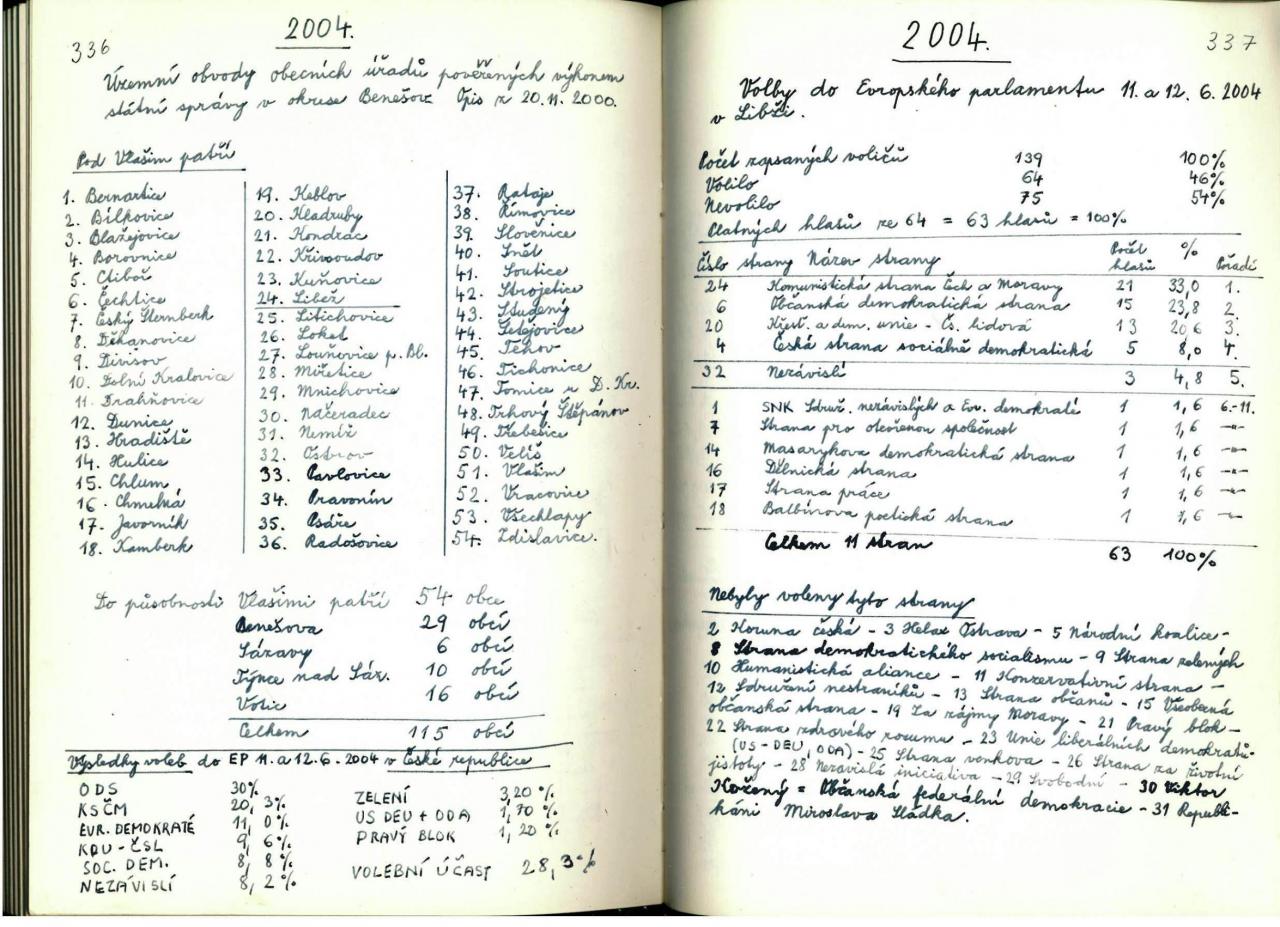 336
2004.
Územní obvody obecních úřadů pověřených výkonem
státní správy v okrese Benešov Opis z 20.11.2000.
Pod Vlašim patří
1. Bernartice
2. Bílkovice
3. Blažejovice
4. Borovnice
5. Ctiboř
6. Čechtice
7. Český Šternberk
8. Děkanovice
9. Divišov
10. Dolní Kralovice
11. Drahňovice
12. Dunice
13. Hradiště
14. Hulice
15. Chlum
16. Chmelná
17. Javorník
18. Kamberk
19. Keblov
20. Kladruby
21. Kondrac
22. Křivsoudov
23. Kuňovice
24. Libež
25. Litichovice
26. Loket
27. Louňovice p. Bl.
28. Miřetice
29. Mnichovice
30. Načeradec
31. Nemíž
32. Ostrov
33. Pavlovice
34. Pravonín
35. Psáře
36. Radošovice
37. Rataje
38. Řimovice
39. Slověnice
40. Snět
41. Soutice
42. Strojetice
43. Studený
44. Šetějovice
45. Tehov
46. Tichonice
47. Tomice u D. Kr.
48. Trhový Štěpánov
49. Třebešice
50. Veliš
51. Vlašim
52. Vracovice
53. Všechlapy
54. Zdislavice.
Do působnosti Vlašimi patří 54 obce
Benešova 29 obcí
Sázavy 6 obcí
Týnce nad Sáz. 10 obcí
Votic 16 obcí
Celkem 115 obcí
Výsledky voleb do EP 11. a 12.6.2004 v České republice
ODS 30%
KSČM 20,3%
EVR. DEMOKRATÉ 11,0%
KDU-ČSL 9,6%
SOC. DEM. 8,8%
NEZÁVISLÍ 8,2%
ZELENÍ 3,20%
US DEU + ODA 1,70%
PRAVÝ BLOK 1,20%
VOLEBNÍ ÚČAST 28,3%
2004.
337
Volby do Evropského parlamentu 11. a 12. 6. 2004
v Libži.
Počet zapsaných voličů 139 100%
Volilo 64 46%
Nevolilo 75 54%
Platných hlasů ze 64 = 63 hlasů = 100%
Číslo strany Název strany Počet hlasů % Pořadí
24 Komunistická strana Čech a Moravy 21 33,0 1.
6 Občanská demokratická strana 15 23,8 2.
20 Křest. a dem. unie - Čs. lidová 13 20 6 3.
4 Česká strana sociálně demokratická 5 8,0 4.
32 Nezávislí 3 4,8 5.
1 SNK Sdruž. nezávislých a Ev. demokraté 1 1,6 6.-11.
7 Strana pro otevřenou společnost 1 1,6 -"-
14 Masarykova demokratická strana 1 1,6 -"-
16 Dělnická strana 1 1,6 -"-
17 Strana práce 1 1,6 -"-
18 Balbínova poetická strana 1 1,6 -"-
Celkem 11 stran 63 100%
Nebyly voleny tyto strany
2 Koruna česká - 3 Helax Ostrava - 5 Národní koalice -
8 Strana demokratického socialismu - 9 Strana zelených
10 Humanistická aliance - 11 Konzervativní strana -
12 Sdružení nestraníků - 13 Strana občanů - 15 Všeobecná
občanská strana - 19 Za zájmy Moravy - 21 Pravý blok -
22 Strana zdravého rozumu - 23 Unie liberálních demokratů-
(US - DEU, ODA) - 25 Strana venkova - 26 Strana za životní
jistoty - 28 Nezavislá iniciativa - 29 Svobodní - 30 Viktor
Kožený = Občanská federální demokracie - 31 Republi-
káni Miroslava Sládka.